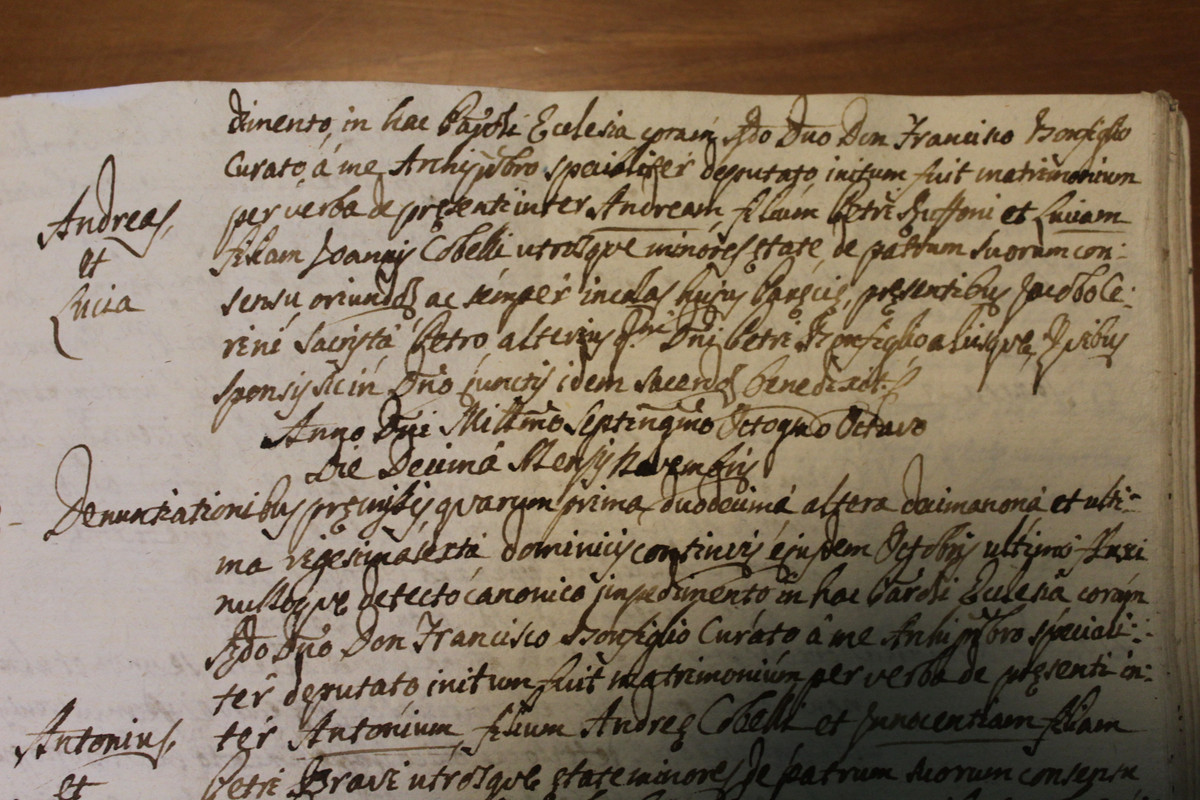 dimento, in hac Par̃li Ecclesia coram Rdo Dno Don Francisco Bonfiglio
Curato á me Archip̃bro specialiter deputato initum fuit matrimonium
Andreas, per verba de pręsenti inter Andream filium Petri Ruffoni et Luciam
et filiam Joannis Cobelli utrosque minores ętate de patrum suorum con:
Lucia sensu oriundos ac semper incolas hujus Paręcię, pręsentibus Jacobo Ce:
rini Sacrista Petro alterius Dni Petri Bonfiglio aliisque, quibus
sponsis sic in Dno junctis idem sacerdos benedixit.
Anno Dni Millmo Septingmo Octogmo Octavo
Die Decima Mensis Novembris
Denuntiationibus pręmissis quarum prima duodecima altera decimanona et ulti=
ma vigesimasexta dominicis continuis ejusdem Octobris ultimi fluxi
nulloque detecto canonico impedimento in hac Par̃li Ecclesia coram
Rdo Dno Don Francisco Bonfiglio Curato á me Archip̃bro speciali:
ter deputato initum fuit matrimonium per verba de pręsenti in:
Antonius, ter Antonium, filium Andreę Cobelli et Innocentiam filiam
et Petri Bravi utrosque ętate minores de patrum suorum consensu